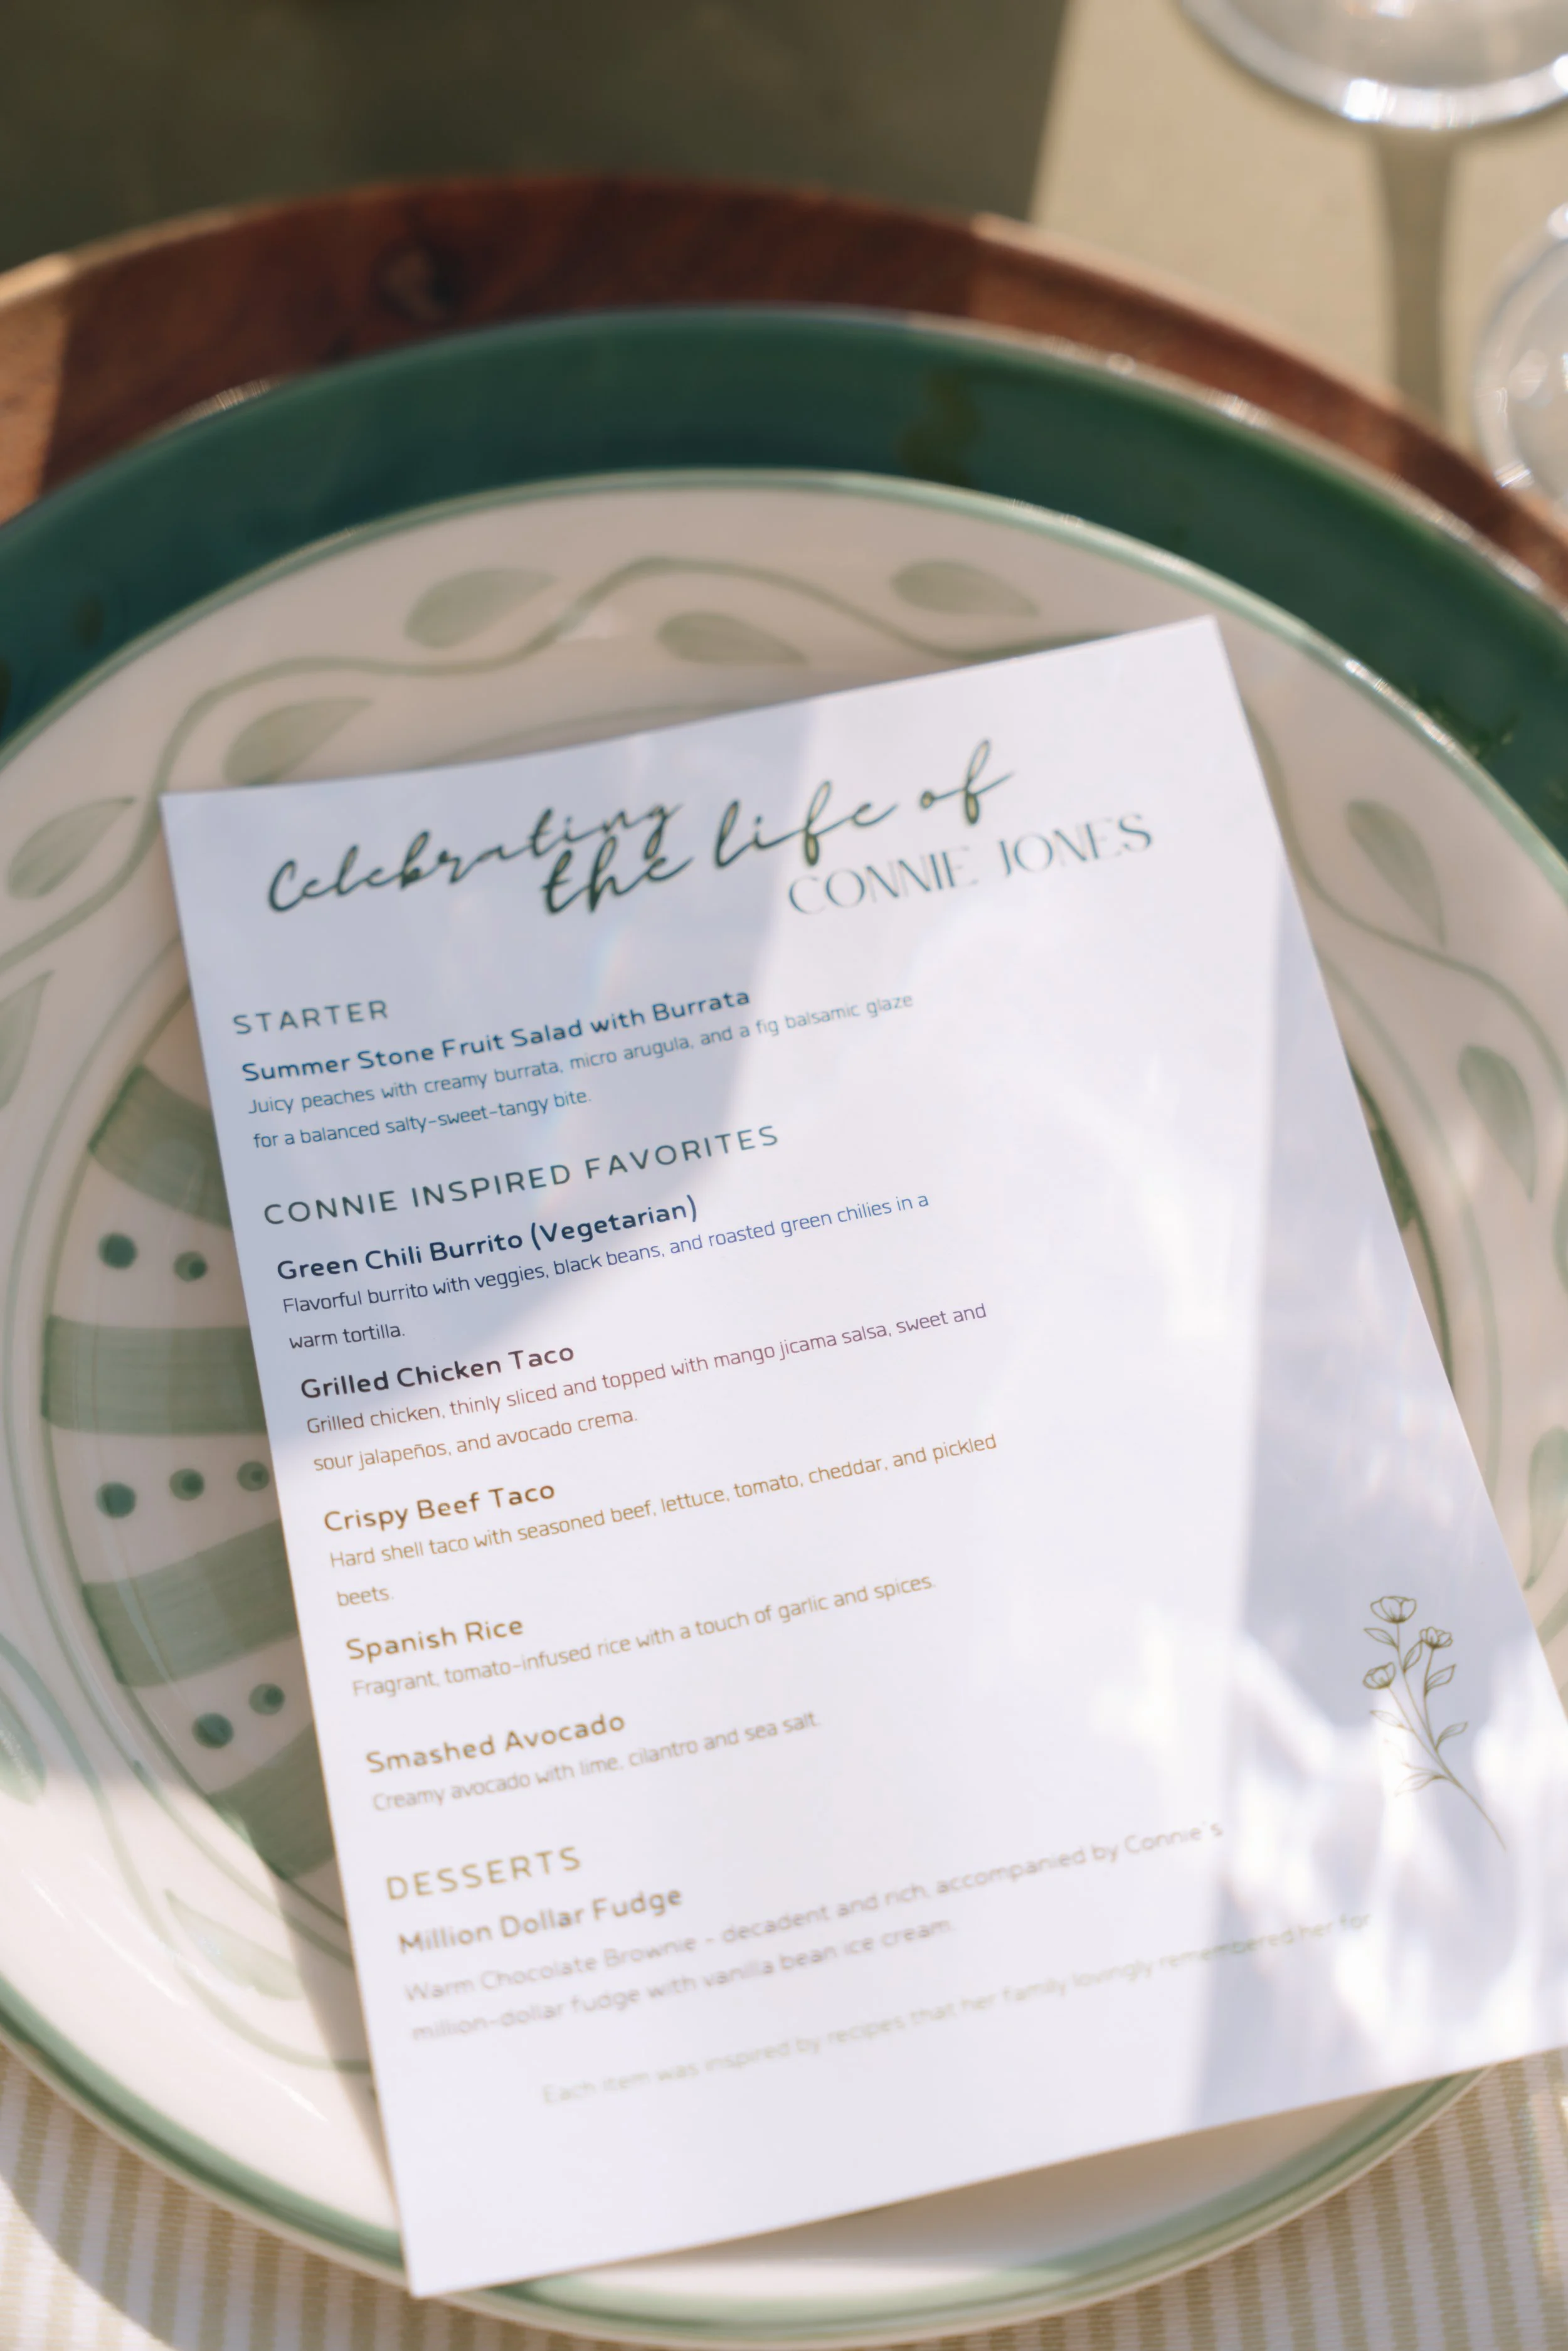 Celebrating
the life of
CONNIE JONES
STARTER
Summer Stone Fruit Salad with Burrata
Juicy peaches with creamy burrata, micro arugula, and a fig balsamic glaze
for a balanced salty-sweet-tangy bite.
CONNIE INSPIRED FAVORITES
Green Chili Burrito (Vegetarian)
Flavorful burrito with veggies, black beans, and roasted green chilies in a
warm tortilla.
Grilled Chicken Taco
Grilled chicken, thinly sliced and topped with mango jicama salsa, sweet and
sour jalapeños, and avocado crema.
Crispy Beef Taco
Hard shell taco with seasoned beef, lettuce, tomato, cheddar, and pickled
beets.
Spanish Rice
Fragrant, tomato-infused rice with a touch of garlic and spices.
Smashed Avocado
Creamy avocado with lime, cilantro and sea salt.
DESSERTS
Million Dollar Fudge
Warm Chocolate Brownie - decadent and rich, accompanied by Connie's
million-dollar fudge with vanilla bean ice cream.
Each item was inspired by recipes that her family lovingly remembered her for